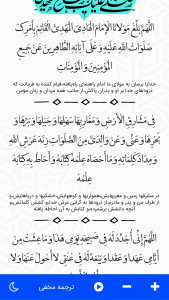 اللَّهُمَّ بَلِّغْ مَوْلَانَا الْإِمَامَ الْهَادِيَ الْمَهْدِيَّ الْقَائِمَ بِأَمْرِكَ
صَلَوَاتُ اللَّهِ عَلَيْهِ وَ عَلَى آبَائِهِ الطَّاهِرِينَ عَنْ جَمِيعِ
الْمُؤْمِنِينَ وَ الْمُؤْمِنَاتِ
خدایا برسان به مولای ما امام راهنمای راه‌یافته،قیام کننده به فرمانت که
درودهای خدا بر او و پدران پاکش،از جانب همه مردان و زنان مؤمن
فِي مَشَارِقِ الْأَرْضِ وَ مَغَارِبِهَا سَهْلِهَا وَ جَبَلِهَا وَ بَرِّهَا وَ
بَحْرِهَا وَ عَنِّي وَ عَنْ وَالِدَيَّ مِنَ الصَّلَوَاتِ زِنَةَ عَرْشِ اللَّهِ
وَ مِدَادَ كَلِمَاتِهِ وَ مَا أَحْصَاهُ عِلْمُهُ وَ أَحَاطَ بِهِ كِتَابُهُ
در مشرقهای زمین و مغربهایش،همواریها و کوههایش،خشکیها و دریاهایش،و
از طرف من و پدر و مادرم از درودها به گرانی عرش خدا،و کشش کلماتش،و
آنچه دانشش برشمرده،و کتابش به آن احاطه یافته
اللَّهُمَّ إِنِّي أُجَدِّدُ لَهُ فِي صَبِيحَةِ يَوْمِي هَذَا وَ مَا عِشْتُ مِنْ
أَيَّامِي عَهْداً وَ عَقْداً وَ بَيْعَةً لَهُ فِي عُنُقِي لَا أَحُولُ عَنْهَا وَ لَا
ترجمه مخفی